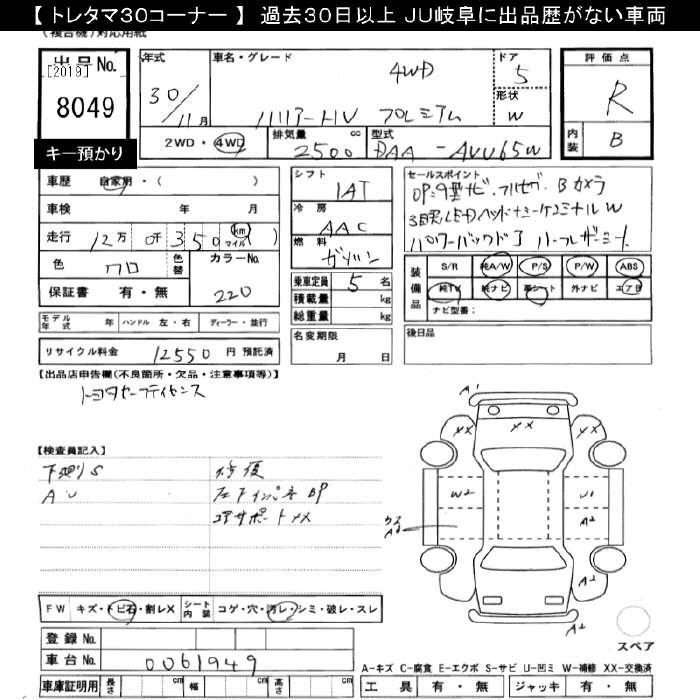 【 トレタマ30コーナー 】 過去30日以上 JU岐阜に出品歴がない車両
(複合機)対応用紙
出品No.
[2019]
8049
キー預かり
年式
30/11月
車名・グレード
4WD
ハリアーHV プレミアム
ドア
5
形状
W
評価点
R
内装
B
2WD・4WD
排気量
2500 cc
型式
DAA-AVU65W
車歴 自家用・( )
車検 年 月
走行 12万 0千 350 km マイル ( )
色 クロ
色替
カラーNo.
220
保証書 有・無
シフト
IAT
冷房
AAC
燃料
ガソリン
乗車定員 5 名
積載量 kg
総重量 kg
セールスポイント
OP:9型ナビ、フルセグ、Bカメラ
3目LEDヘッド
パワーバックドア ハーフレザーシート
装備品
S/R 純A/W P/S P/W ABS
純TV 純ナビ 革シート 外ナビ エアB
ナビ型番:
モデル年式 年 ハンドル 左・右 ディーラー・並行
リサイクル料金 12550 円 預託済
名変期限
月 日
後日品
【出品店申告欄(不良箇所・欠品・注意事項等)】
トヨタセーフティセンス
【検査員記入】
下廻りS
AU
修復
コアサポートXX
A1
XX
XX
XX
W2
U1
A2
A2
A2
FW キズ・トビ石・割レX
シート内装 コゲ・穴・汚レ・シミ・破レ・スレ
登録No.
車台No. 0061949
車庫証明用 長さ cm 幅 cm 高さ cm
スペア
A-キズ C-腐食 E-エクボ S-サビ U-凹ミ W-補修 XX-交換済
工具 有・無 ジャッキ 有・無